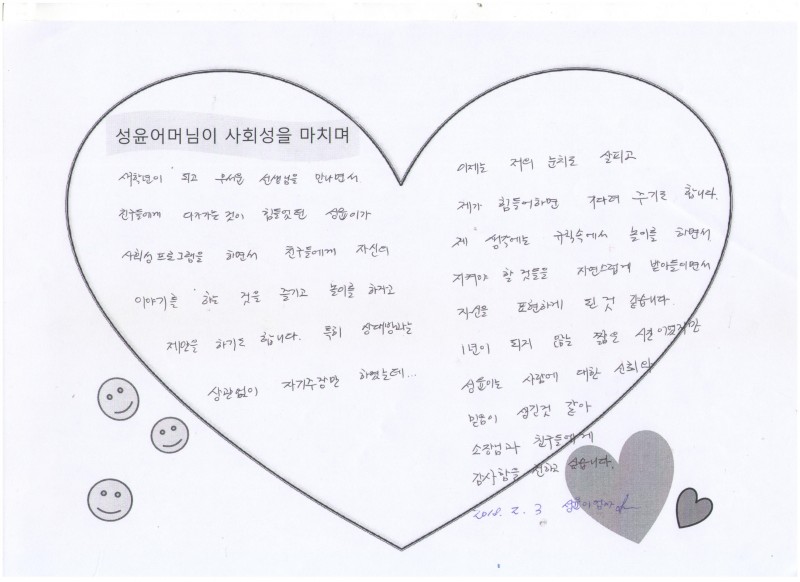 성윤어머님이 사회성을 마치며
새학년이 되고 우서윤 선생님을 만나면서
친구들에게 다가가는 것이 힘들었던 성윤이가
사회성프로그램을 하면서 친구들에게 자신의
이야기를 하는 것을 즐기고 놀이를 하자고
제안을 하기도 합니다. 특히 상대방과는
상관없이 자기주장만 하였는데...
이제는 저의 눈치도 살피고
제가 힘들어하면 기다려 주기도 합니다.
제 생각에는 규칙속에서 놀이를 하면서
지켜야 할 것들을 자연스럽게 받아들이면서
자신을 표현하게 된 것 같습니다.
1년이 되지 않는 짧은 시간이였지만
성윤이는 사람에 대한 신뢰와
믿음이 생긴것 같아
소장님과 친구들에게
감사함을 전하고 싶습니다.
2018. 2. 3 성윤이엄마